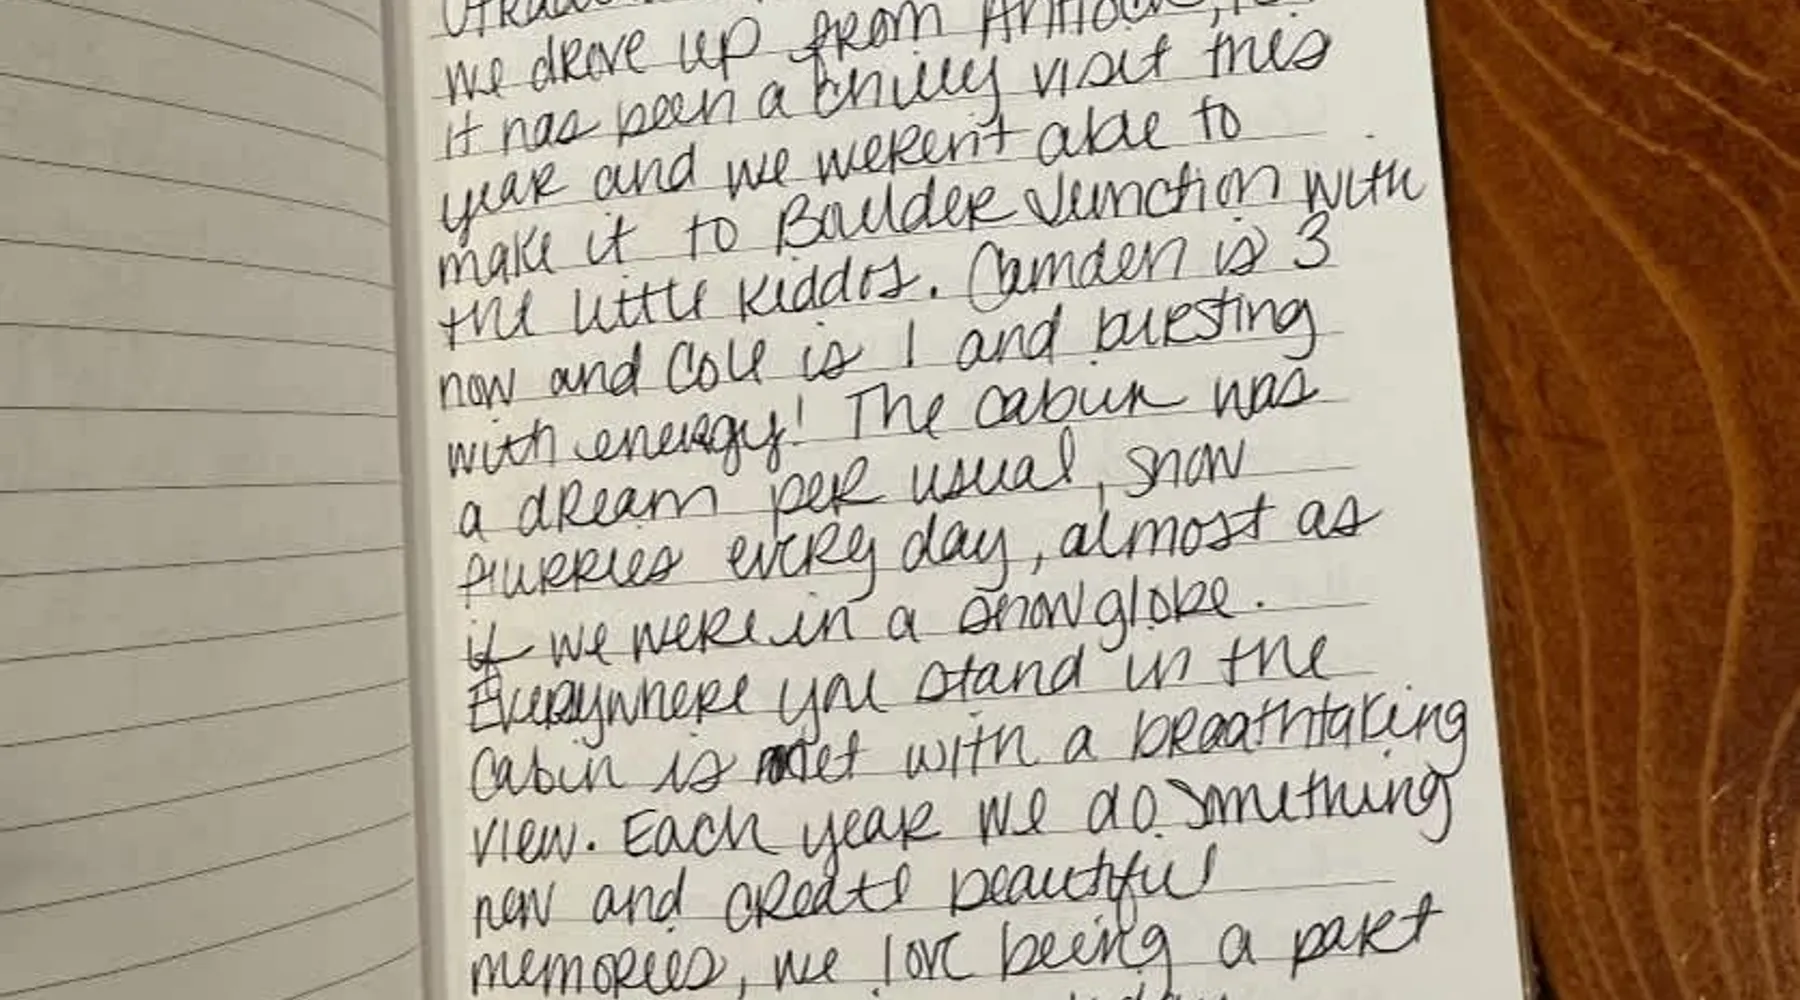 we drove up from Antioch,
it has been a chilly visit this
year and we weren't able to
make it to Boulder Junction with
the little kiddos. Camden is 3
now and Cole is 1 and bursting
with energy! The cabin was
a dream per usual, snow
flurries every day, almost as
if we were in a snowglobe.
Everywhere you stand in the
cabin is met with a breathtaking
view. Each year we do something
new and create beautiful
memories, we love being a part